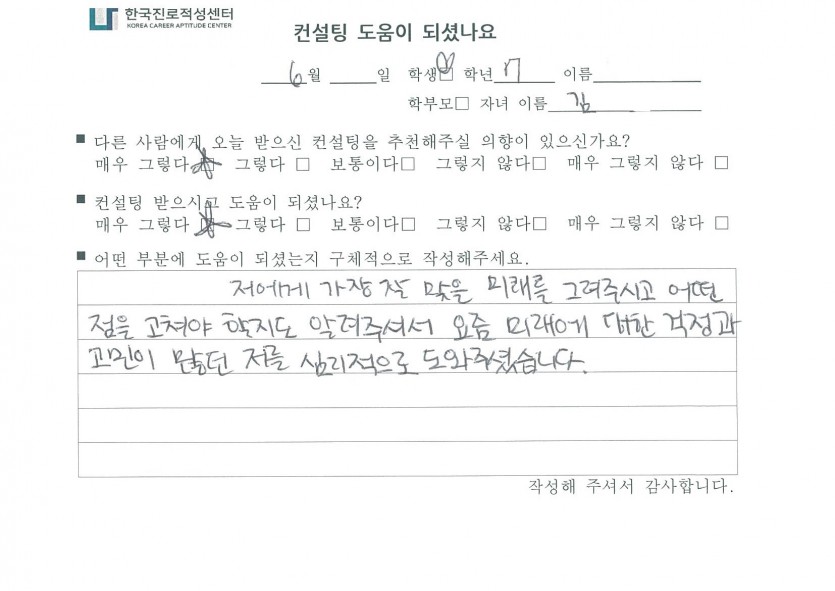 한국진로적성센터
KOREA CAREER APTITUDE CENTER
컨설팅 도움이 되셨나요
6월 일 학생□ 학년 이름
학부모□ 자녀 이름 김
■ 다른 사람에게 오늘 받으신 컨설팅을 추천해주실 의향이 있으신가요?
매우 그렇다 □ 그렇다 □ 보통이다□ 그렇지 않다□ 매우 그렇지 않다 □
■ 컨설팅 받으시고 도움이 되셨나요?
매우 그렇다 □ 그렇다 □ 보통이다□ 그렇지 않다□ 매우 그렇지 않다 □
■ 어떤 부분에 도움이 되셨는지 구체적으로 작성해주세요.
저에게 가장 잘 맞을 미래를 그려주시고 어떤
점을 고쳐야 할지도 알려주셔서 요즘 미래에 대한 걱정과
고민이 많던 저를 심리적으로 도와주셨습니다.
작성해 주셔서 감사합니다.